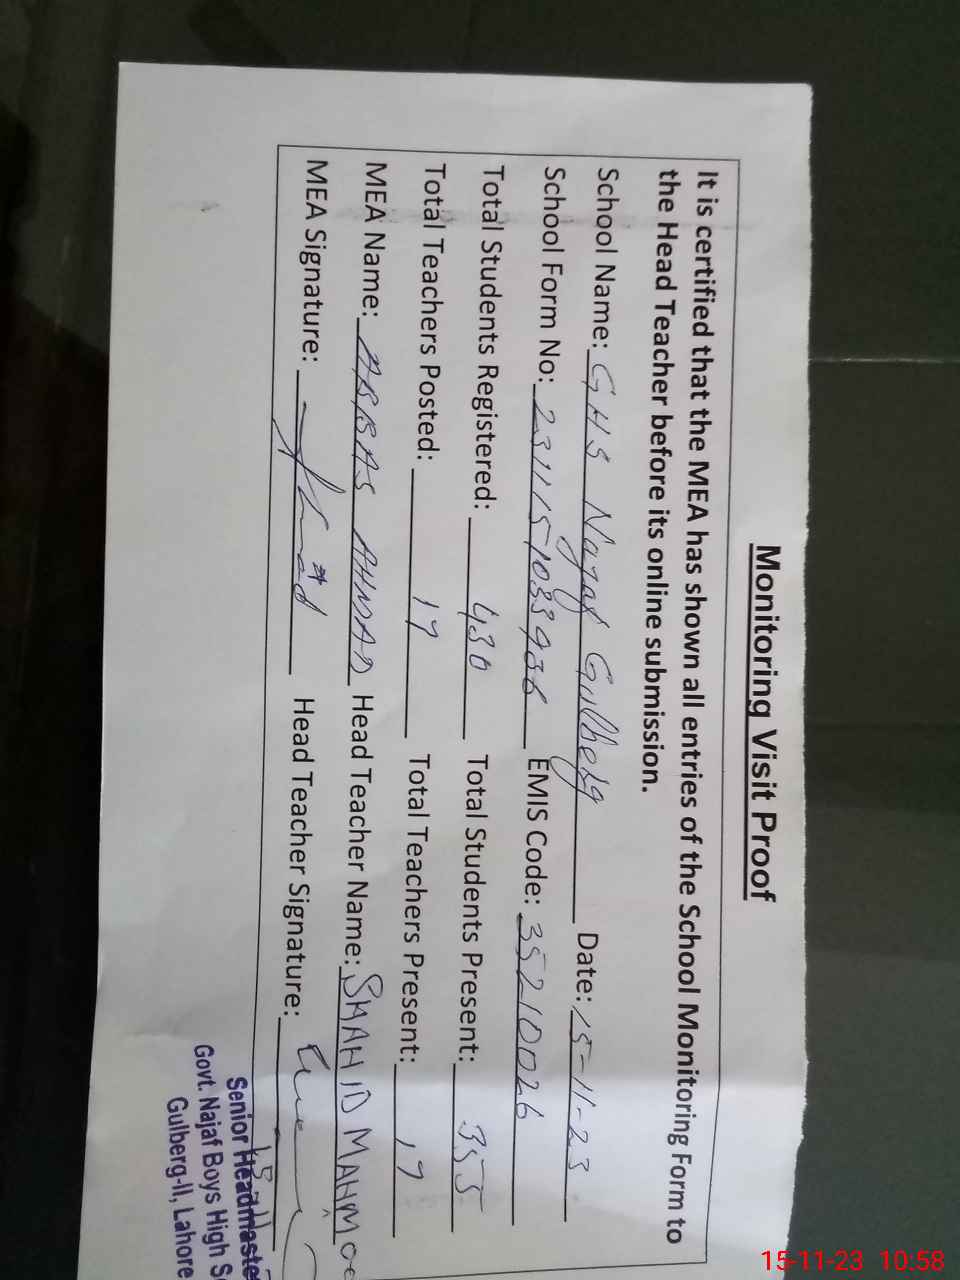 Monitoring Visit Proof
It is certified that the MEA has shown all entries of the School Monitoring Form to
the Head Teacher before its online submission.
School Name: GHS Najaf Gulberg Date: 15-11-23
School Form No: EMIS Code: 35210026
Total Students Registered: 430 Total Students Present: 355
Total Teachers Posted: 17 Total Teachers Present: 17
MEA Name: ABBAS AHMAD Head Teacher Name: SHAHID MAHMOO
MEA Signature: Head Teacher Signature:
Senior Headmaste
Govt. Najaf Boys High S
Gulberg-II, Lahore
15-11-23 10:58